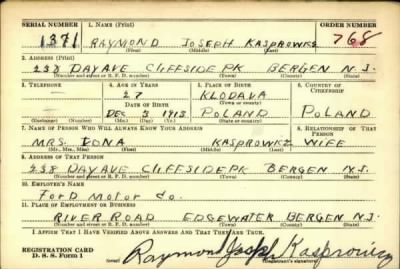 SERIAL NUMBER 1. NAME (Print) ORDER NUMBER
1371 RAYMOND JOSEPH KASPROWICZ 768
(First) (Middle) (Last)
2. ADDRESS (Print)
238 DAY AVE CLIFFSIDE PK BERGEN N.J.
(Number and street or R. F. D. number) (Town) (County) (State)
3. TELEPHONE 4. AGE IN YEARS 5. PLACE OF BIRTH 6. COUNTRY OF CITIZENSHIP
27 KLODAVA
DATE OF BIRTH (Town or county)
DEC 3 1913 POLAND POLAND
(Exchange) (Number) (Mo.) (Day) (Yr.) (State or country)
7. NAME OF PERSON WHO WILL ALWAYS KNOW YOUR ADDRESS 8. RELATIONSHIP OF THAT PERSON
MRS. EDNA KASPROWICZ WIFE
(Mr., Mrs., Miss) (First) (Middle) (Last)
9. ADDRESS OF THAT PERSON
238 DAY AVE CLIFFSIDE PK BERGEN N.J.
(Number and street or R. F. D. number) (Town) (County) (State)
10. EMPLOYER'S NAME
Ford Motor Co.
11. PLACE OF EMPLOYMENT OR BUSINESS
RIVER ROAD EDGEWATER BERGEN N.J.
(Number and street or R. F. D. number) (Town) (County) (State)
I AFFIRM THAT I HAVE VERIFIED ABOVE ANSWERS AND THAT THEY ARE TRUE.
REGISTRATION CARD
D. S. S. Form 1 (over) Raymond Joseph Kasprowicz
(Registrant's signature)